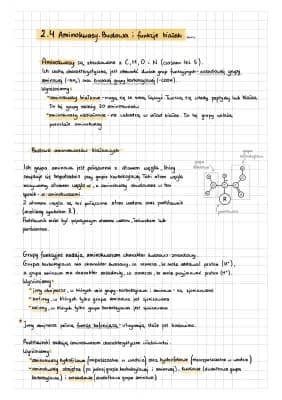 2.4 Aminokwasy. Budowa i funkcje białek
Aminokwasy są zbudowane z C, H, O i N (czasem też S).
Ich cechą charakterystyczną, jest obecność dwóch grup funkcyjnych - zasadowej grupy
aminowej (-NH₂) oraz kwasowej grupy karboksylowej (-COOH).
Wyróżniamy:
*aminokwasy białkowe - mogą się ze sobą łączyć. Tworzą się wtedy peptydy lub białka.
Do tej grupy należy 20 aminokwasów
*aminokwasy niebiałkowe - nie wchodzą w skład białek. Do tej grupy należą
pozostałe aminokwasy
Budowa aminokwasów białkowych
Ich grupa aminowa jest połączona z atomem węgla, który
znajduje się bezpośrednio przy grupie karboksylowej. Taki atom węgla
nazywamy atomem węgla α, a aminokwasy zbudowane w ten
sposób - α-aminokwasami
Z atomem węgla α są też połączone atom wodoru oraz podstawnik
(ozn. symbolem R).
Podstawnik może być pojedynczym atomem wodoru, łańcuchem lub
pierścieniem.
grupa
aminowa
grupa
karboksylowa
R
podstawnik
Grupy funkcyjne nadają aminokwasom charakter kwasowo-zasadowy.
Grupa karboksylowa ma charakter kwasowy, co oznacza, że może oddawać proton (H⁺),
a grupa aminowa ma charakter zasadowy, co oznacza, że może przyjmować proton (H⁺).
Wyróżniamy:
*jony obojnacze, w których obie grupy - karboksylowa i aminowa - są zjonizowane
*kationy, w których tylko grupa aminowa jest zjonizowana
*aniony, w których tylko grupa karboksylowa jest zjonizowana
Jony obojnacze pełnią funkcję buforującą - utrzymują stałe pH środowiska.
Podstawniki nadają aminokwasom charakterystyczne właściwości.
Wyróżniamy:
*aminokwasy hydrofilowe (rozpuszczalne w wodzie) oraz hydrofobowe (nierozpuszczalne w wodzie)
*aminokwasy obojętne (po jednej grupie karboksylowej i aminowej), kwasowe (dodatkowa grupa
karboksylowa) i zasadowe (dodatkowa grupa aminowa)